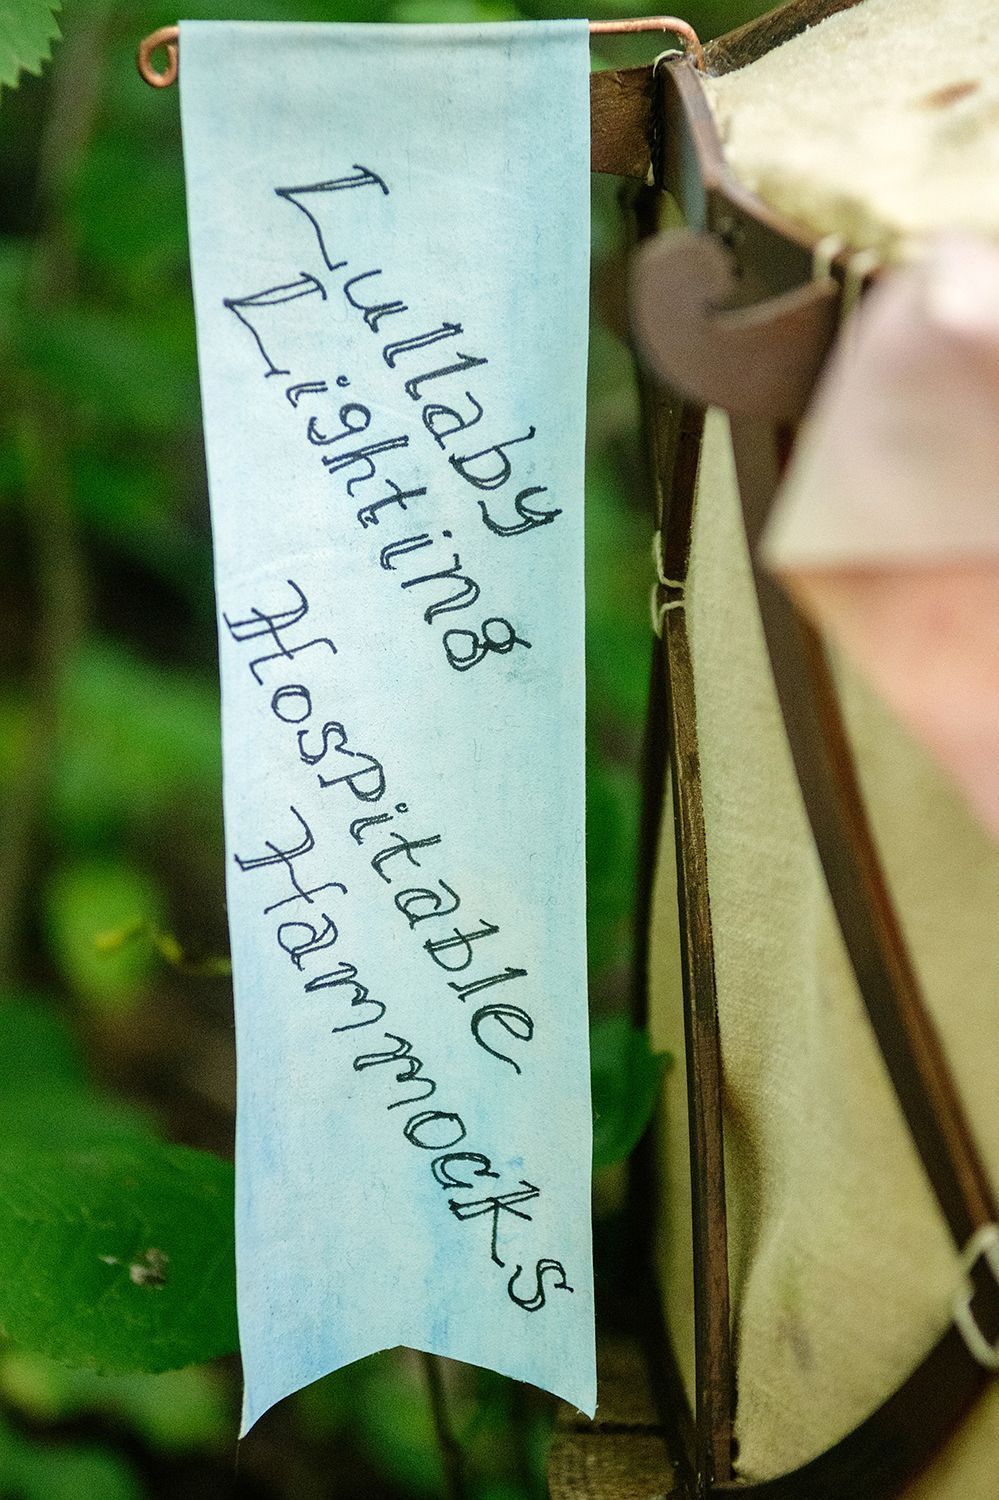 Lullaby
Lighting
Hospitable
Hammocks